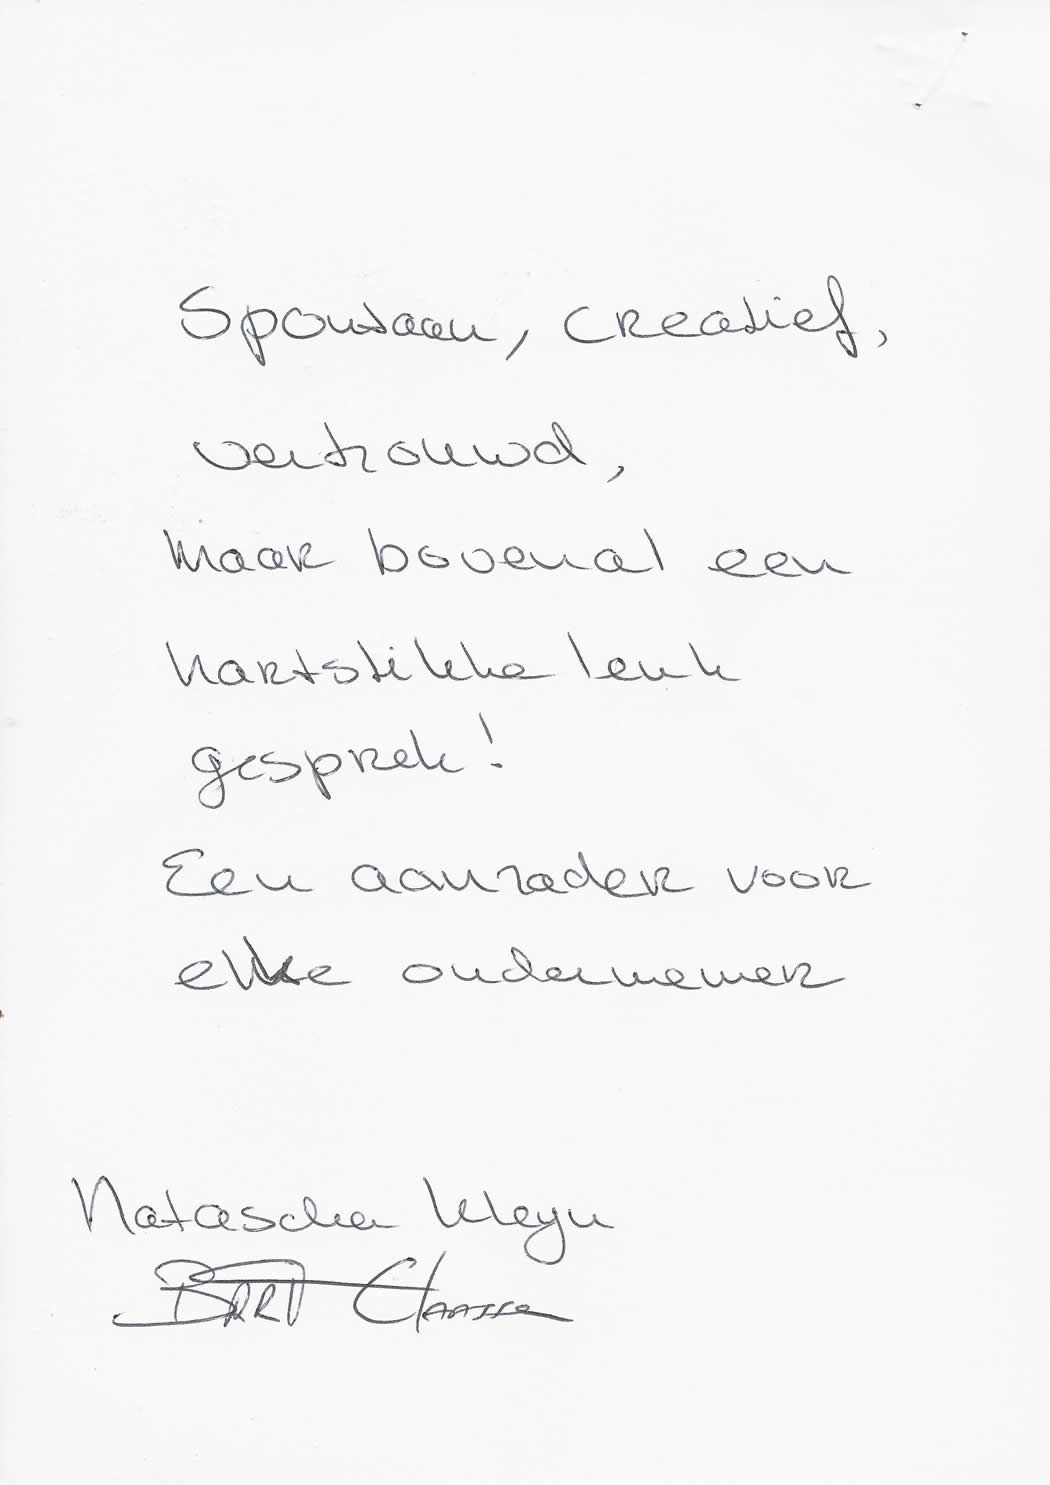 Spontaan, creatief,
vertrouwd,
maar bovenal een
hartstikke leuk
gesprek!
Een aanrader voor
elke ondernemer
Natascha Kleyn
Bart